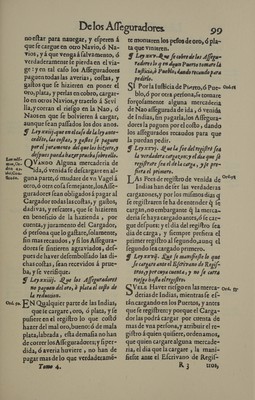 De los Asseguradores. 99
no estar para nauegar, y esperen á
que se cargue en otro Nauio, ó Na-
uios, y á que venga á saluamento, ó
verdaderamente se pierda en el via-
ge: y en tal caso los Asseguradores
paguen todas las auerias, costas, y
gastos que se hizieren en poner el
oro, plata, y perlas en cobro, cargar-
lo en otros Nauios, y traerlo á Seui-
lla, y corran el riesgo en la Nao, ó
Naos en que se boluieren á cargar,
aunque sean passados los dos años.
despues pueda hazer prueba sobre ello.
QUando Alguna mercaderia de
ida, ó venida se descargare en al-
guna parte, ó mudare de vn Vagel á
otro, ó otra cosa semejante, los Asse-
guradores sean obligados á pagar al
Cargador todas las costas, y gastos,
dadiuas, y rescates, que se hizieren
en beneficio de la hazienda, por
cuenta, y juramento del Cargador,
ó persona que lo gastare, solamente,
sin mas recaudos, y si los Assegura-
dores se sintieren agrauiados, des-
pues de hauer desembolsado las di-
chas costas, sean recevidos á prue-
ba, y se verifique.
¶ Ley xxiiij. Que los Asseguradores
no paguen del oro, ó plata el costo de
la reduccion.
Ord. 32.
EN Qualquier parte de las Indias,
que se cargare, oro, ó plata, y se
pusiere en el registro lo que costó
hazer del mal oro, bueno: ó de mala
plata, labrada, esta demasia no han
de correr los Asseguradores; y si per-
dida, ó aueria huuiere, no han de
pagar mas de lo que verdaderamé-
Tomo 4.
te montaren los pesos de oro, ó pla-
ta que vinieren.
Ord. 33
SI Por la Iusticia de Puerto, ó Pue-
blo, ó por otra persona, se tomare
forçosamente alguna mercaderia
de Nao assegurada de ida, ó venida
de Indias, sin pagarla, los Assegura-
dores la paguen por el costo, dando
los assegurados recaudos para que
la puedan pedir.
¶ Ley xxvj. Que la fee del registro sea
la verdadera carga, y si el dia que se
registrare fue el de la carga, y se pre-
fiera el primero.
LA Fee de registro de venida de
Indias han de ser las verdaderas
cargazones, y por los mismos dias q
se registraren se ha de entender q se
cargó, no embargante q la merca-
deria se haya cargado antes, ó se car-
gue despues: y el dia del registro sea
dia de carga, y siempre prefiera el
primer registro al segundo, aunq el
segundo sea cargado primero.
¶ Ley xxvij. Que se manifieste lo que
se cargare ante el Escriuano de Regis-
tros, y por cuya cuenta, y no se corra
riesgo hasta el registro.
SVele Hauer riesgo en las mer-
caderias de Indias, mientras se es-
tán cargando en los Puertos, y antes
que se registren: y porque el Carga-
dor las podrá cargar por cuenta de
mas de vna persona, y atribuir el re-
gistro á quien quisiere, ordenamos,
que quien cargare alguna mercade-
ria, el dia que la cargare, la mani-
fieste ante el Escriuano de Regis-
R 3 tros,